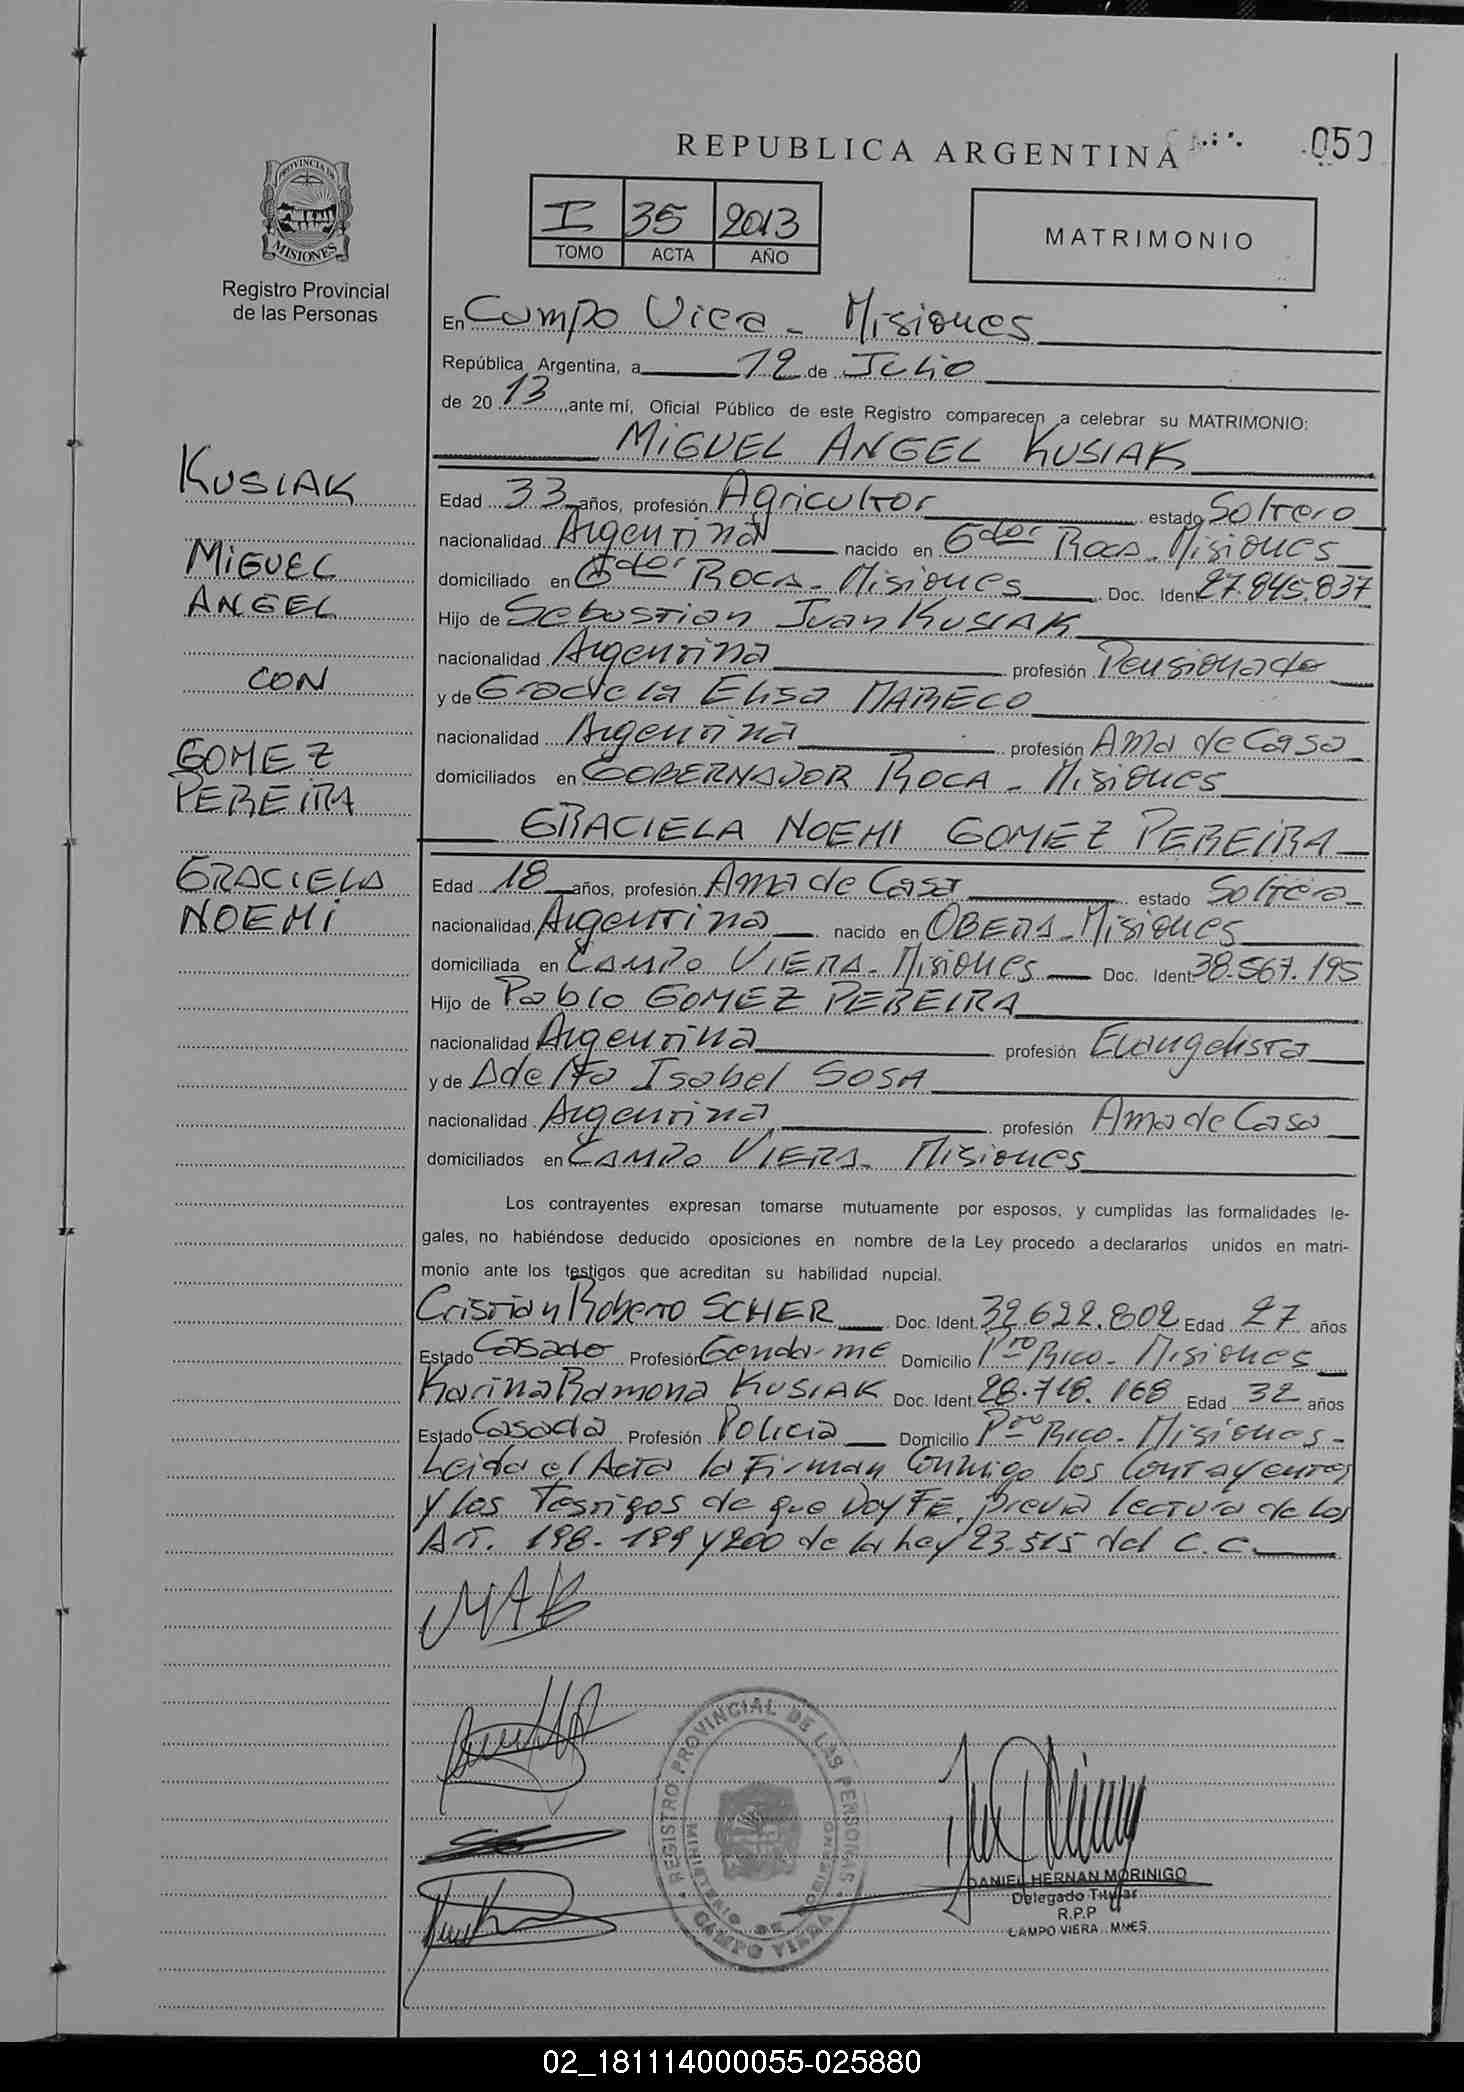 REPUBLICA ARGENTINA
050
PROVINCIA DE
MISIONES
Registro Provincial
de las Personas
I 35 2013
TOMO ACTA AÑO
MATRIMONIO
En Campo Viera - Misiones
República Argentina, a 12 de Julio
de 20 13 ante mí, Oficial Público de este Registro comparecen a celebrar su MATRIMONIO:
MIGUEL ANGEL KUSIAK
Edad 33 años, profesión Agricultor estado Soltero
nacionalidad Argentina nacido en Gdor Roca - Misiones
domiciliado en Gdor ROCA - Misiones Doc. Ident. 27.845.837
Hijo de Sebastian Juan KUSIAK
nacionalidad Argentina profesión Pensionado
y de Graciela Elisa MARECO
nacionalidad Argentina profesión Ama de Casa
domiciliados en GOBERNADOR ROCA - Misiones
GRACIELA NOEMI GOMEZ PEREIRA
Edad 18 años, profesión Ama de Casa estado Soltera
nacionalidad Argentina nacido en OBERA - Misiones
domiciliada en CAMPO VIERA - Misiones Doc. Ident. 38.567.195
Hijo de Pablo GOMEZ PEREIRA
nacionalidad Argentina profesión Evangelista
y de Adelta Isabel SOSA
nacionalidad Argentina profesión Ama de Casa
domiciliados en CAMPO VIERA - Misiones
Los contrayentes expresan tomarse mutuamente por esposos, y cumplidas las formalidades le-
gales, no habiéndose deducido oposiciones en nombre de la Ley procedo a declararlos unidos en matri-
monio ante los testigos que acreditan su habilidad nupcial.
Cristian Roberto SCHER Doc. Ident. 32.622.802 Edad 27 años
Estado Casado Profesión Gendarme Domicilio Pto Rico - Misiones
Karina Ramona KUSIAK Doc. Ident. 28.718.168 Edad 32 años
Estado Casada Profesión Policia Domicilio Pto Rico - Misiones -
Leida el Acta la Firman Conmigo los Contrayentes
y los Testigos de que Doy FE, previa lectura de los
Art. 198 - 199 y 200 de la Ley 23.515 del C.C.
KUSIAK
MIGUEL
ANGEL
CON
GOMEZ
PEREIRA
GRACIELA
NOEMI
MAK
REGISTRO PROVINCIAL DE LAS PERSONAS
MINISTERIO DE GOBIERNO
CAMPO VIERA
DANIEL HERNAN MORINIGO
Delegado Titular
R.P.P
CAMPO VIERA MNES
02_181114000055-025880